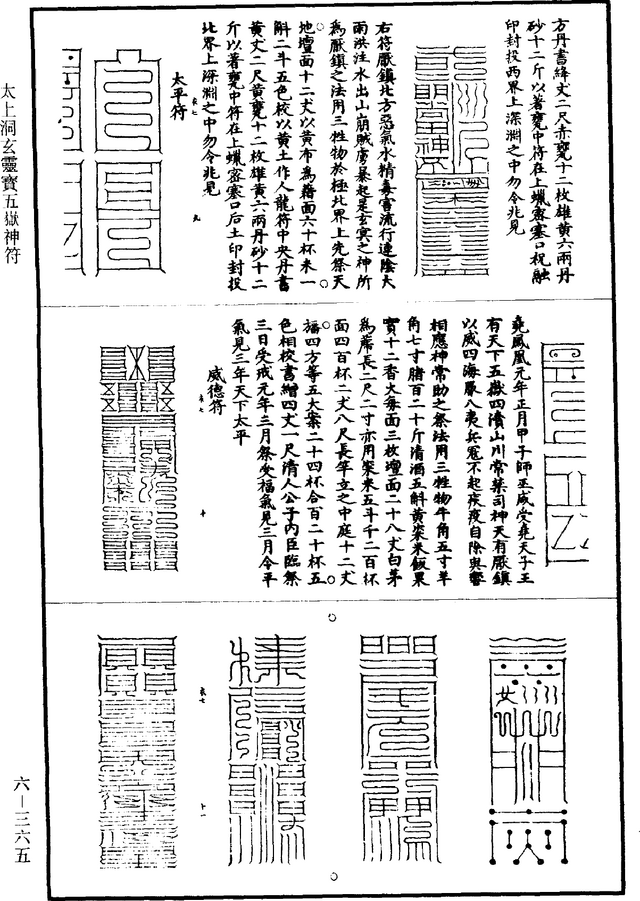 方丹書緯丈二尺赤甕十二枚雄黃六兩丹
砂十二斤以著甕中符在上蠟密塞口祝融
印封投西界上深淵之中勿令兆見
右符厭鎮北方惡氣水精毒害流行連陰大
雨洪注水出山崩賊虜暴起是玄冥之神所
為厭鎮之法用三牲物於極北界上先祭天
地壇面十二丈以黃布為藉面六十杯米一
斛二斗五色綵以黃土作人龍符中央丹書
黃丈二尺黃甕十二枚雄黃六兩丹砂十二
斤以著甕中符在上蠟密塞口后土印封投
北界上深淵之中勿令兆見
太平符
堯鳳凰元年正月甲子師巫咸受堯天子王
有天下五嶽四瀆山川常業司神天有厭鎮
以威四海厭八夷兵冤不起疾疫自除與響
相應神常助之祭法用三牲物牛角五寸羊
角七寸腊百二十斤清酒五斛黃粢米飯果
實十二香火每面三枚壇面二十八丈白茅
為薦長二尺二寸亦用粢米五斗千二百杯
面四百杯二丈八尺長竿立之中庭十二丈
福四方等五大案二十四杯合百二十杯五
色相校書繒四丈一尺清人公子內臣臨祭
三日受戒元年三月祭受福氣見三月令平
氣見三年天下太平
威德符
太上洞玄靈寶五嶽神符
六—三六五